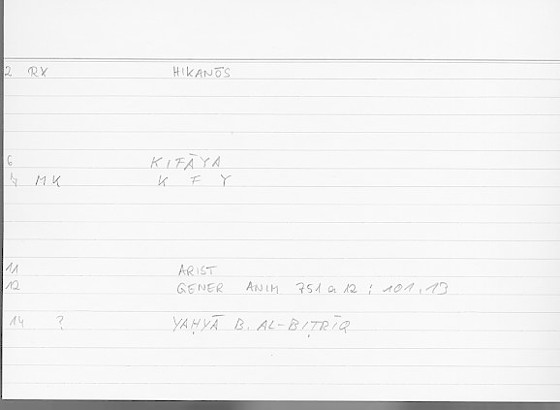 2 RX HIKANŌS
6 KIFĀYA
MK K F Y
11 ARIST
12 GENER ANIM 751 a 12 ; 101,13
14 ? YAḤYĀ B. AL-BIṬRĪQ